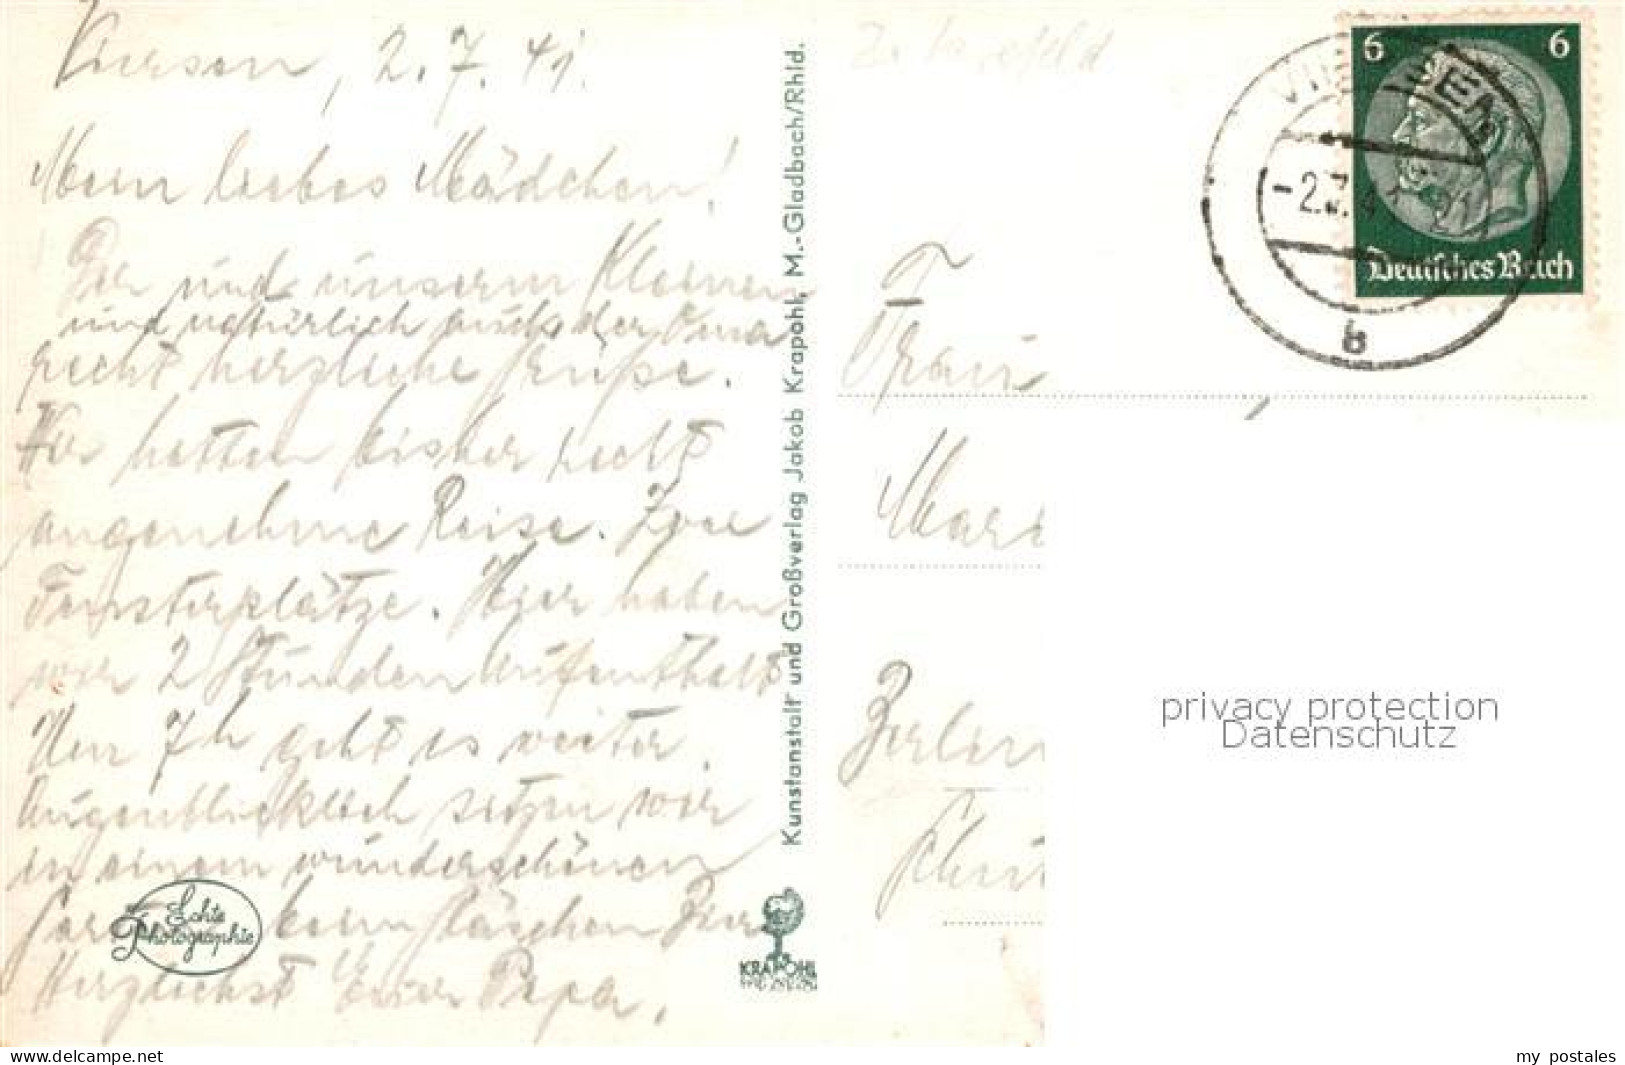 Viersen, 2.7.41.
Mein liebes Mädchen!
Dir und unserm Kleinen
und natürlich auch der Oma
recht herzliche Grüße.
Wir hatten bisher recht
angenehme Reise. Zwei
Fensterplätze. Hier haben
wir 2 Stunden Aufenthalt
Um 7h geht es weiter.
Augenblicklich sitzen wir
in einem wunderschönen
beim Gläschen Bier
Herzlichst Euer Papa.
Echte
Photographie
Kunstanstalt und Großverlag Jakob Krapohl, M.-Gladbach/Rhld.
KRAPOHL
6 6
Deutsches Reich
VIERSEN
-2.7.41 21
b
Frau
Mari
Berlin
Schu
privacy protection
Datenschutz
www.delcampe.net
my postales